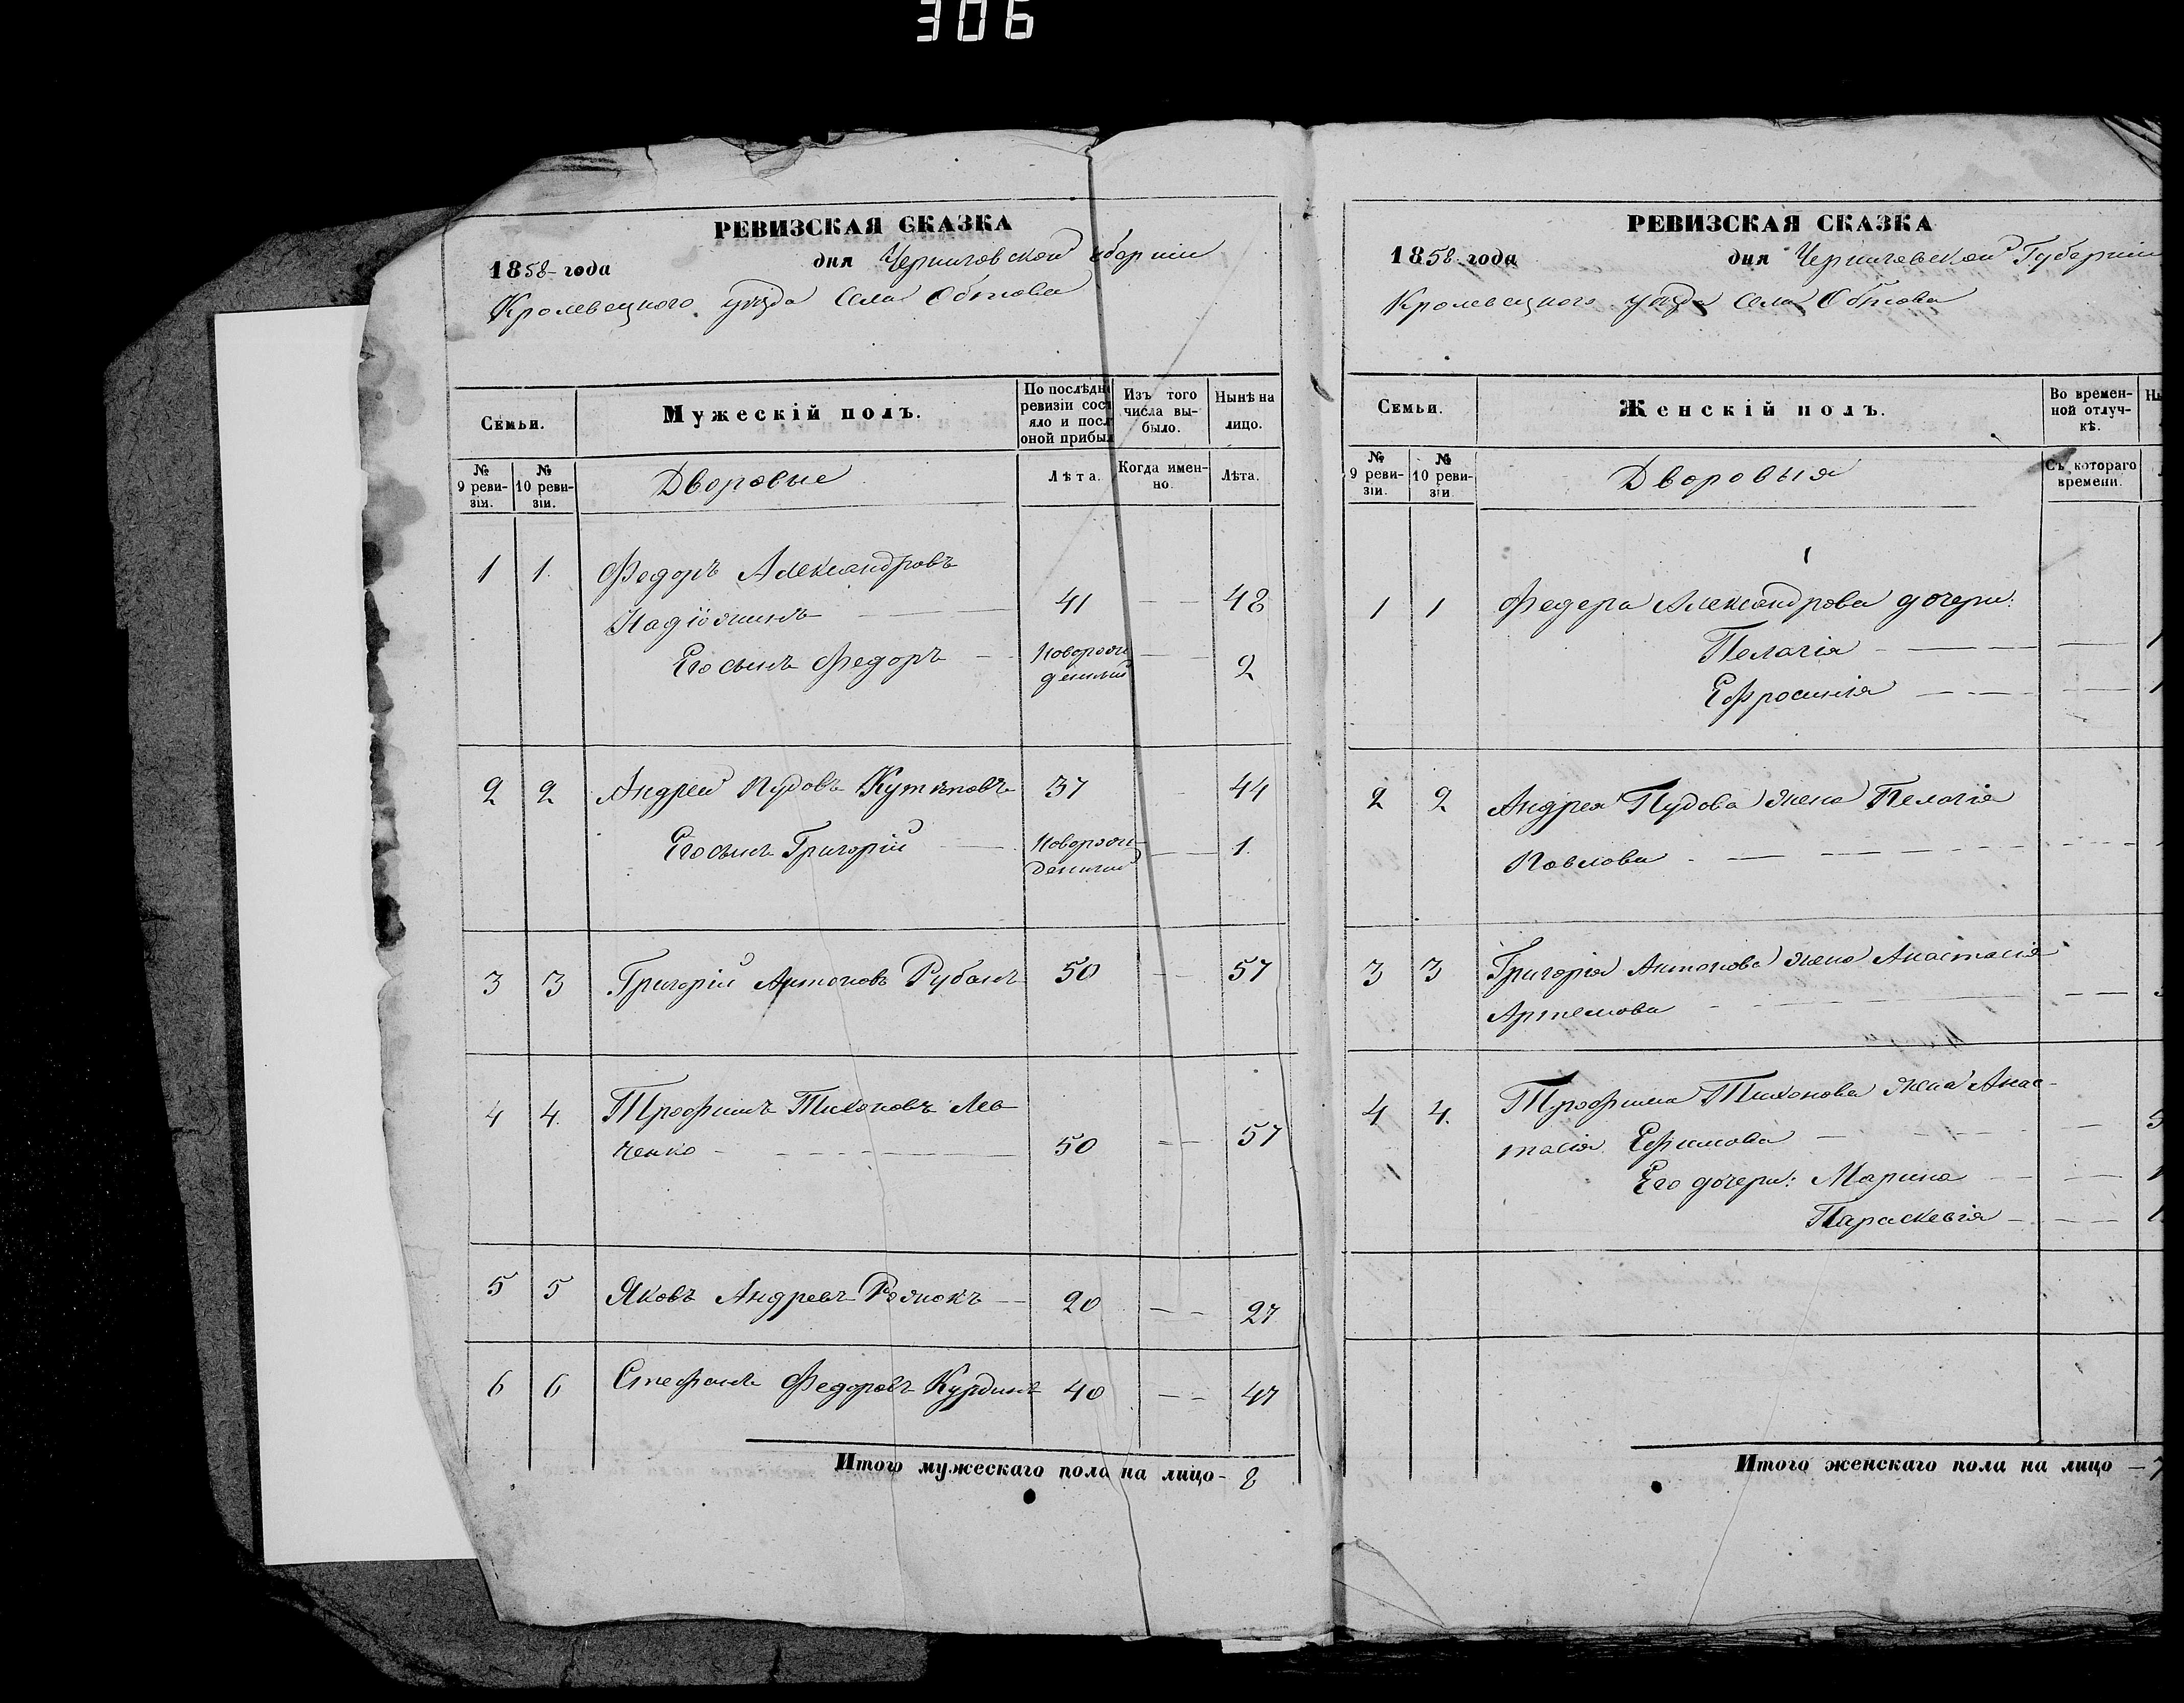 306
РЕВИЗСКАЯ СКАЗКА
1858 года дня Черниговской
Кролевецкого уезда Села Обтова
Семьи.
Мужескій полъ.
По послѣдн
ревизіи сост
яло и посл
оной прибыл
Изъ того
числа вы-
было.
Нынѣ на
лицо.
№
9 реви-
зіи.
№
10 реви-
зіи.
Дворовые
Лѣта.
Когда имен-
но.
Лѣта.
1 1. Федоръ Александровъ
41 — — 48
Его сынъ Федоръ — Новорож
денный — — 2
2 2 Андрей Пудовъ 37 — 44
Его сынъ Григорій — Новорож-
денный — — 1.
3 3 Григорій Антоновъ Рубанъ 50 — — 57
4 4. Трофимъ Тихоновъ Лев
ченко — 50 — — 57
5 5 Яковъ Андреевъ — 20 — — 27
6 6 Стефанъ Федоровъ Курдинъ 40 — — 47
Итого мужескаго пола на лицо - 8
РЕВИЗСКАЯ СКАЗКА
1858 года дня Черниговской Губерніи
Кролевецкого уезда Села Обтова
Семьи.
Женскій полъ.
Во времен-
ной отлуч-
кѣ.
Ны
№
9 реви-
зіи.
№
10 реви-
зіи.
Дворовыя
Съ котораго
времени.
1 1 Федора Александрова дочери:
Пелагія — — — 1
Ефросинія — — — 1
2 2 Андрея Пудова жена Пелагія
Павлова — — —
3 3 Григорія Антонова жена Анастасія
Артемова — — —
4 4. Трофима Тихонова жена Анас-
тасія Ефимова — — 5
Его дочери: Марина — — 1
Параскевія — — 1
Итого женскаго пола на лицо — 7